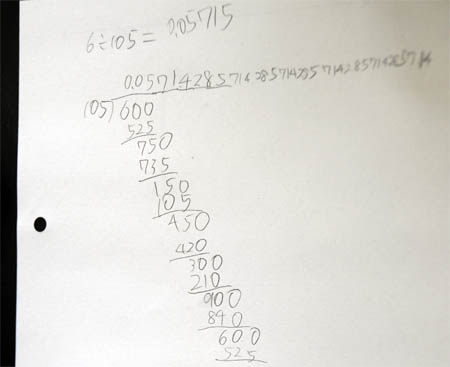 6÷105= 0.05715
0.05714285714285714285714285714285714
105)600
525
750
735
150
105
450
420
300
210
900
840
600
525